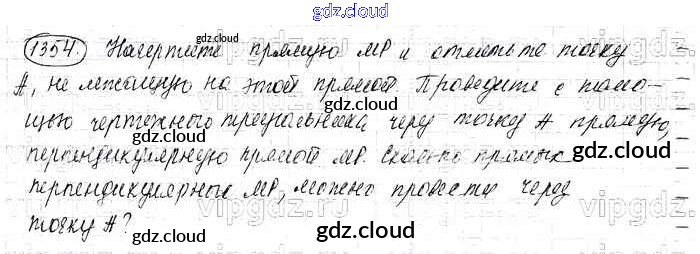 gdz.cloud
1354. Начертите прямую MP и отметьте точку
A, не лежащую на этой прямой. Проведите с помо-
щью чертежного треугольника через точку A прямую,
перпендикулярную прямой MP. Сколько прямых
перпендикулярных MP, можно провести через
точку A?
gdz.cloud
gdz.cloud
gdz.cloud
gdz.cloud
gdz.cloud
gdz.cloud
gdz.cloud
gdz.cloud
vipgdz.ru
vipgdz.ru